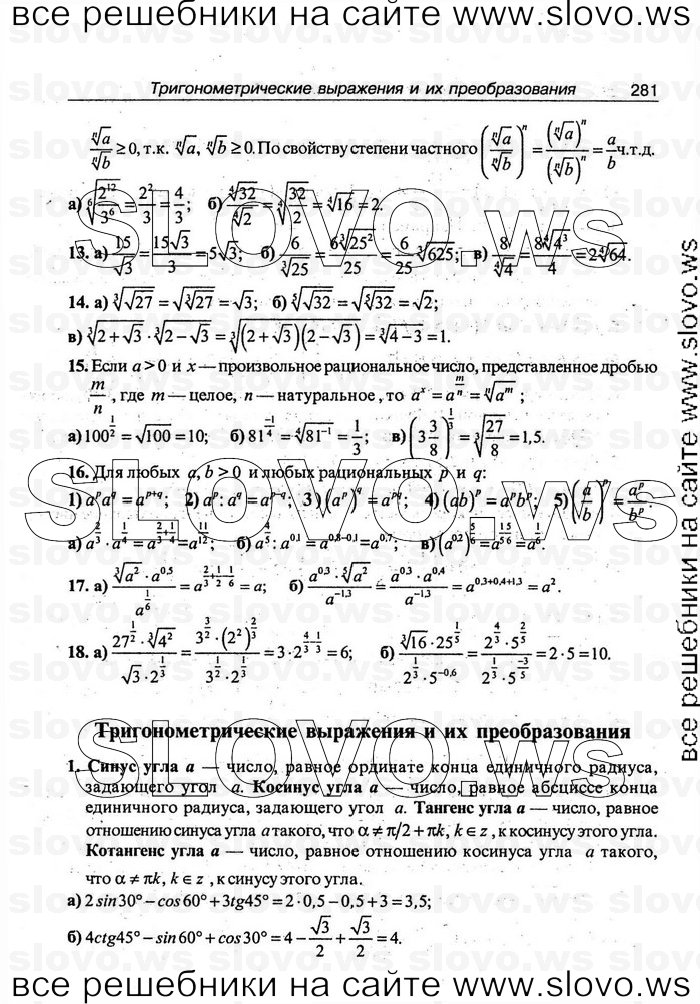 все решебники на сайте www.slovo.ws
Тригонометрические выражения и их преобразования 281
$\frac{\sqrt[n]{a}}{\sqrt[n]{b}} \geq 0$, т.к. $\sqrt[n]{a}, \sqrt[n]{b} \geq 0$. По свойству степени частного $\left(\frac{\sqrt[n]{a}}{\sqrt[n]{b}}\right)^n = \frac{(\sqrt[n]{a})^n}{(\sqrt[n]{b})^n} = \frac{a}{b}$ ч.т.д.
а) $\sqrt[6]{\frac{2^{12}}{3^6}} = \frac{2^2}{3} = \frac{4}{3}$; б) $\frac{\sqrt[4]{32}}{\sqrt[4]{2}} = \sqrt[4]{\frac{32}{2}} = \sqrt[4]{16} = 2$.
13. а) $\frac{15}{\sqrt{3}} = \frac{15\sqrt{3}}{3} = 5\sqrt{3}$; б) $\frac{6}{\sqrt[3]{25}} = \frac{6\sqrt[3]{25^2}}{25} = \frac{6}{25}\sqrt[3]{625}$; в) $\frac{8}{\sqrt[4]{4}} = \frac{8\sqrt[4]{4^3}}{4} = 2\sqrt[4]{64}$.
14. а) $\sqrt[3]{\sqrt{27}} = \sqrt{\sqrt[3]{27}} = \sqrt{3}$; б) $\sqrt[5]{\sqrt{32}} = \sqrt{\sqrt[5]{32}} = \sqrt{2}$;
в) $\sqrt[3]{2+\sqrt{3}} \cdot \sqrt[3]{2-\sqrt{3}} = \sqrt[3]{(2+\sqrt{3})(2-\sqrt{3})} = \sqrt[3]{4-3} = 1$.
15. Если $a > 0$ и $x$ — произвольное рациональное число, представленное дробью
$\frac{m}{n}$, где $m$ — целое, $n$ — натуральное, то $a^x = a^{\frac{m}{n}} = \sqrt[n]{a^m}$;
а) $100^{\frac{1}{2}} = \sqrt{100} = 10$; б) $81^{\frac{-1}{4}} = \sqrt[4]{81^{-1}} = \frac{1}{3}$; в) $\left(3\frac{3}{8}\right)^{\frac{1}{3}} = \sqrt[3]{\frac{27}{8}} = 1,5$.
16. Для любых $a, b > 0$ и любых рациональных $p$ и $q$:
1) $a^p a^q = a^{p+q}$; 2) $a^p : a^q = a^{p-q}$; 3) $(a^p)^q = a^{pq}$; 4) $(ab)^p = a^p b^p$; 5) $\left(\frac{a}{b}\right)^p = \frac{a^p}{b^p}$.
а) $a^{\frac{2}{3}} \cdot a^{\frac{1}{4}} = a^{\frac{2}{3}+\frac{1}{4}} = a^{\frac{11}{12}}$; б) $a^{\frac{4}{5}} : a^{0,1} = a^{0,8-0,1} = a^{0,7}$; в) $(a^{0,2})^{\frac{5}{6}} = a^{\frac{1}{5}\frac{5}{6}} = a^{\frac{1}{6}}$.
17. а) $\frac{\sqrt[3]{a^2} \cdot a^{0,5}}{a^{\frac{1}{6}}} = a^{\frac{2}{3}+\frac{1}{2}-\frac{1}{6}} = a$; б) $\frac{a^{0,3} \cdot \sqrt[5]{a^2}}{a^{-1,3}} = \frac{a^{0,3} \cdot a^{0,4}}{a^{-1,3}} = a^{0,3+0,4+1,3} = a^2$.
18. а) $\frac{27^{\frac{1}{2}} \cdot \sqrt[3]{4^2}}{\sqrt{3} \cdot 2^{\frac{1}{3}}} = \frac{3^{\frac{3}{2}} \cdot (2^2)^{\frac{2}{3}}}{3^{\frac{1}{2}} \cdot 2^{\frac{1}{3}}} = 3 \cdot 2^{\frac{4}{3}-\frac{1}{3}} = 6$; б) $\frac{\sqrt[3]{16} \cdot 25^{\frac{1}{5}}}{2^{\frac{1}{3}} \cdot 5^{-0,6}} = \frac{2^{\frac{4}{3}} \cdot 5^{\frac{2}{5}}}{2^{\frac{1}{3}} \cdot 5^{\frac{-3}{5}}} = 2 \cdot 5 = 10$.
Тригонометрические выражения и их преобразования
1. Синус угла a — число, равное ординате конца единичного радиуса,
задающего угол a. Косинус угла a — число, равное абсциссе конца
единичного радиуса, задающего угол a. Тангенс угла a — число, равное
отношению синуса угла a такого, что $\alpha \neq \pi/2 + \pi k, k \in z$, к косинусу этого угла.
Котангенс угла a — число, равное отношению косинуса угла a такого,
что $\alpha \neq \pi k, k \in z$, к синусу этого угла.
а) $2\sin 30° - \cos 60° + 3tg45° = 2 \cdot 0,5 - 0,5 + 3 = 3,5$;
б) $4ctg45° - \sin 60° + \cos 30° = 4 - \frac{\sqrt{3}}{2} + \frac{\sqrt{3}}{2} = 4$.
все решебники на сайте www.slovo.ws
все решебники на сайте www.slovo.ws
SLOVO.ws
SLOVO.ws
SLOVO.ws